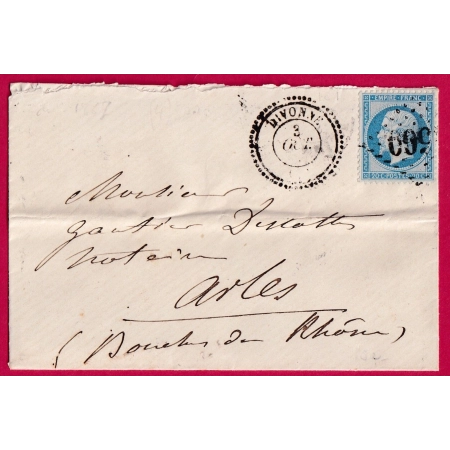 DIVONNE
3
OCT.
EMPIRE FRANC
20 C POSTES 20 C
Monsieur
gautier Descottes
notaire
Arles
(Bouches du Rhône)